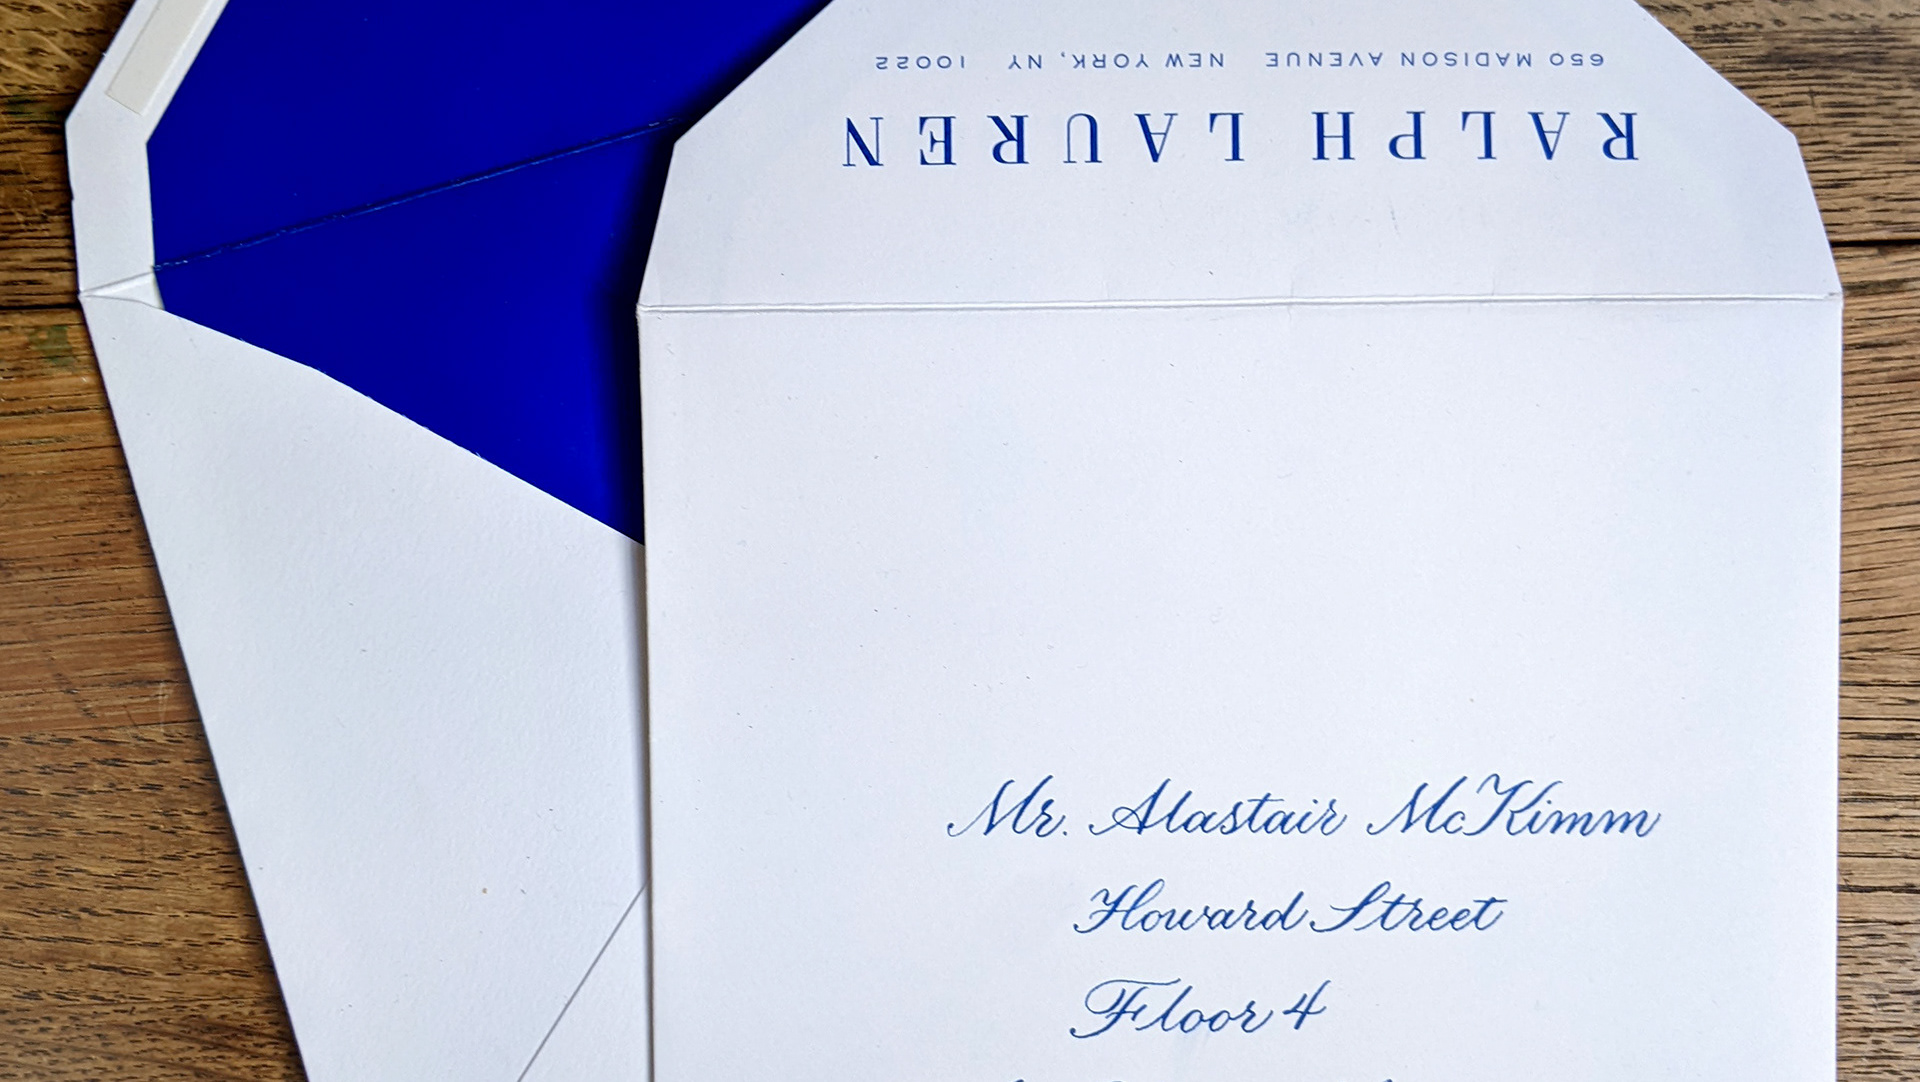 RALPH LAUREN
650 MADISON AVENUE NEW YORK, NY 10022
Mr. Alastair McKimm
Howard Street
Floor 4